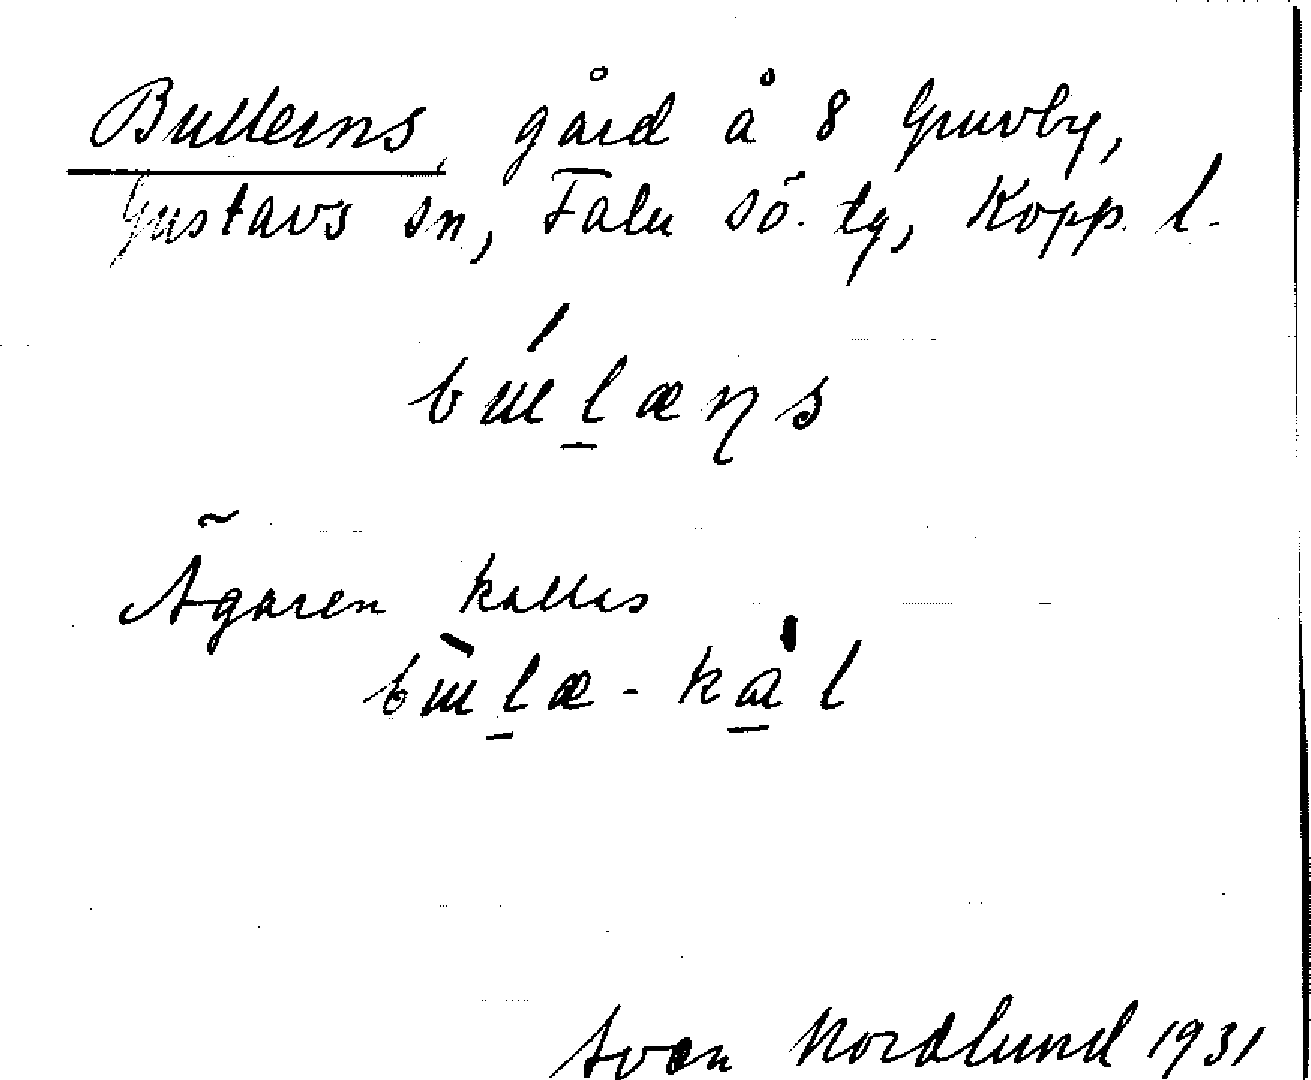 Bullerns, gård å 8 Gruvby,
Gustavs sn, Falu sö. tg, Kopp. l.
bɯ́l̲æɳs
Ägaren kallas
bɯ̀l̲æ-ka̲l
Sven Nordlund 1931